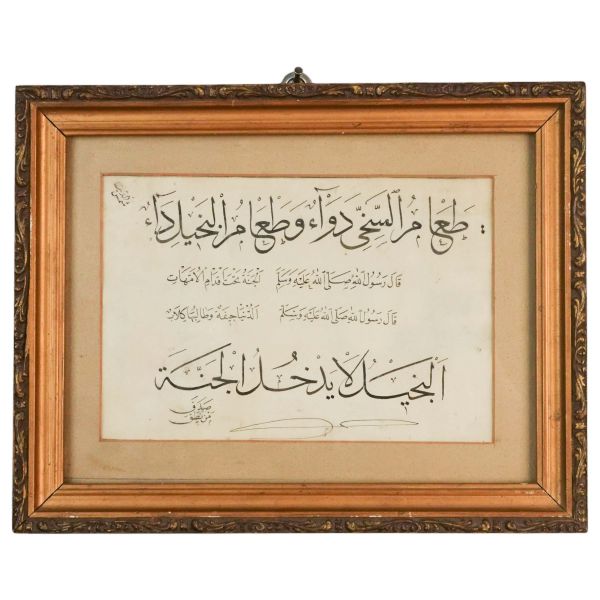 طَعَامُ السَّخِيِّ دَوَآءٌ وَطَعَامُ الْبَخِيلِ دَآءٌ
قَالَ رَسُولُ اللهِ صَلَّى اللهُ عَلَيْهِ وَسَلَّمَ الْجَنَّةُ تَحْتَ اَقْدَامِ الْاُمَّهَاتِ
قَالَ رَسُولُ اللهِ صَلَّى اللهُ عَلَيْهِ وَسَلَّمَ الدُّنْيَا جِيفَةٌ وَطَالِبُهَا كِلَابٌ
اَلْبَخِيلُ لَا يَدْخُلُ الْجَنَّةَ
صَدَقَ
مَنْ نَطَقَ